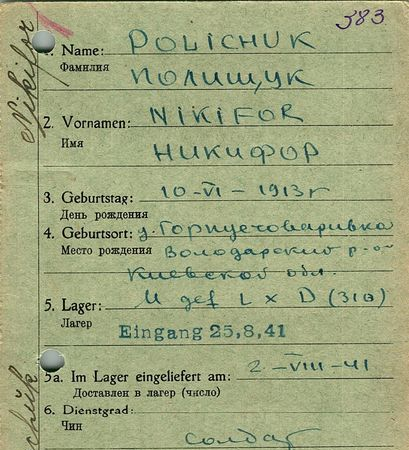 383.
1. Name: POLISCHUK
Фамилия ПОЛИЩУК
2. Vornamen: NIKIFOR
Имя НИКИФОР
3. Geburtstag: 10-VI-1913г
День рождения
4. Geburtsort: д.
Место рождения Володарский р-он
Киевской обл.
5. Lager: (310)
Лагер
Eingang 25,8,41
5a. Im Lager eingeliefert am: 2-VIII-41
Доставлен в лагер (число)
6. Dienstgrad:
Чин солдат
Nikifor